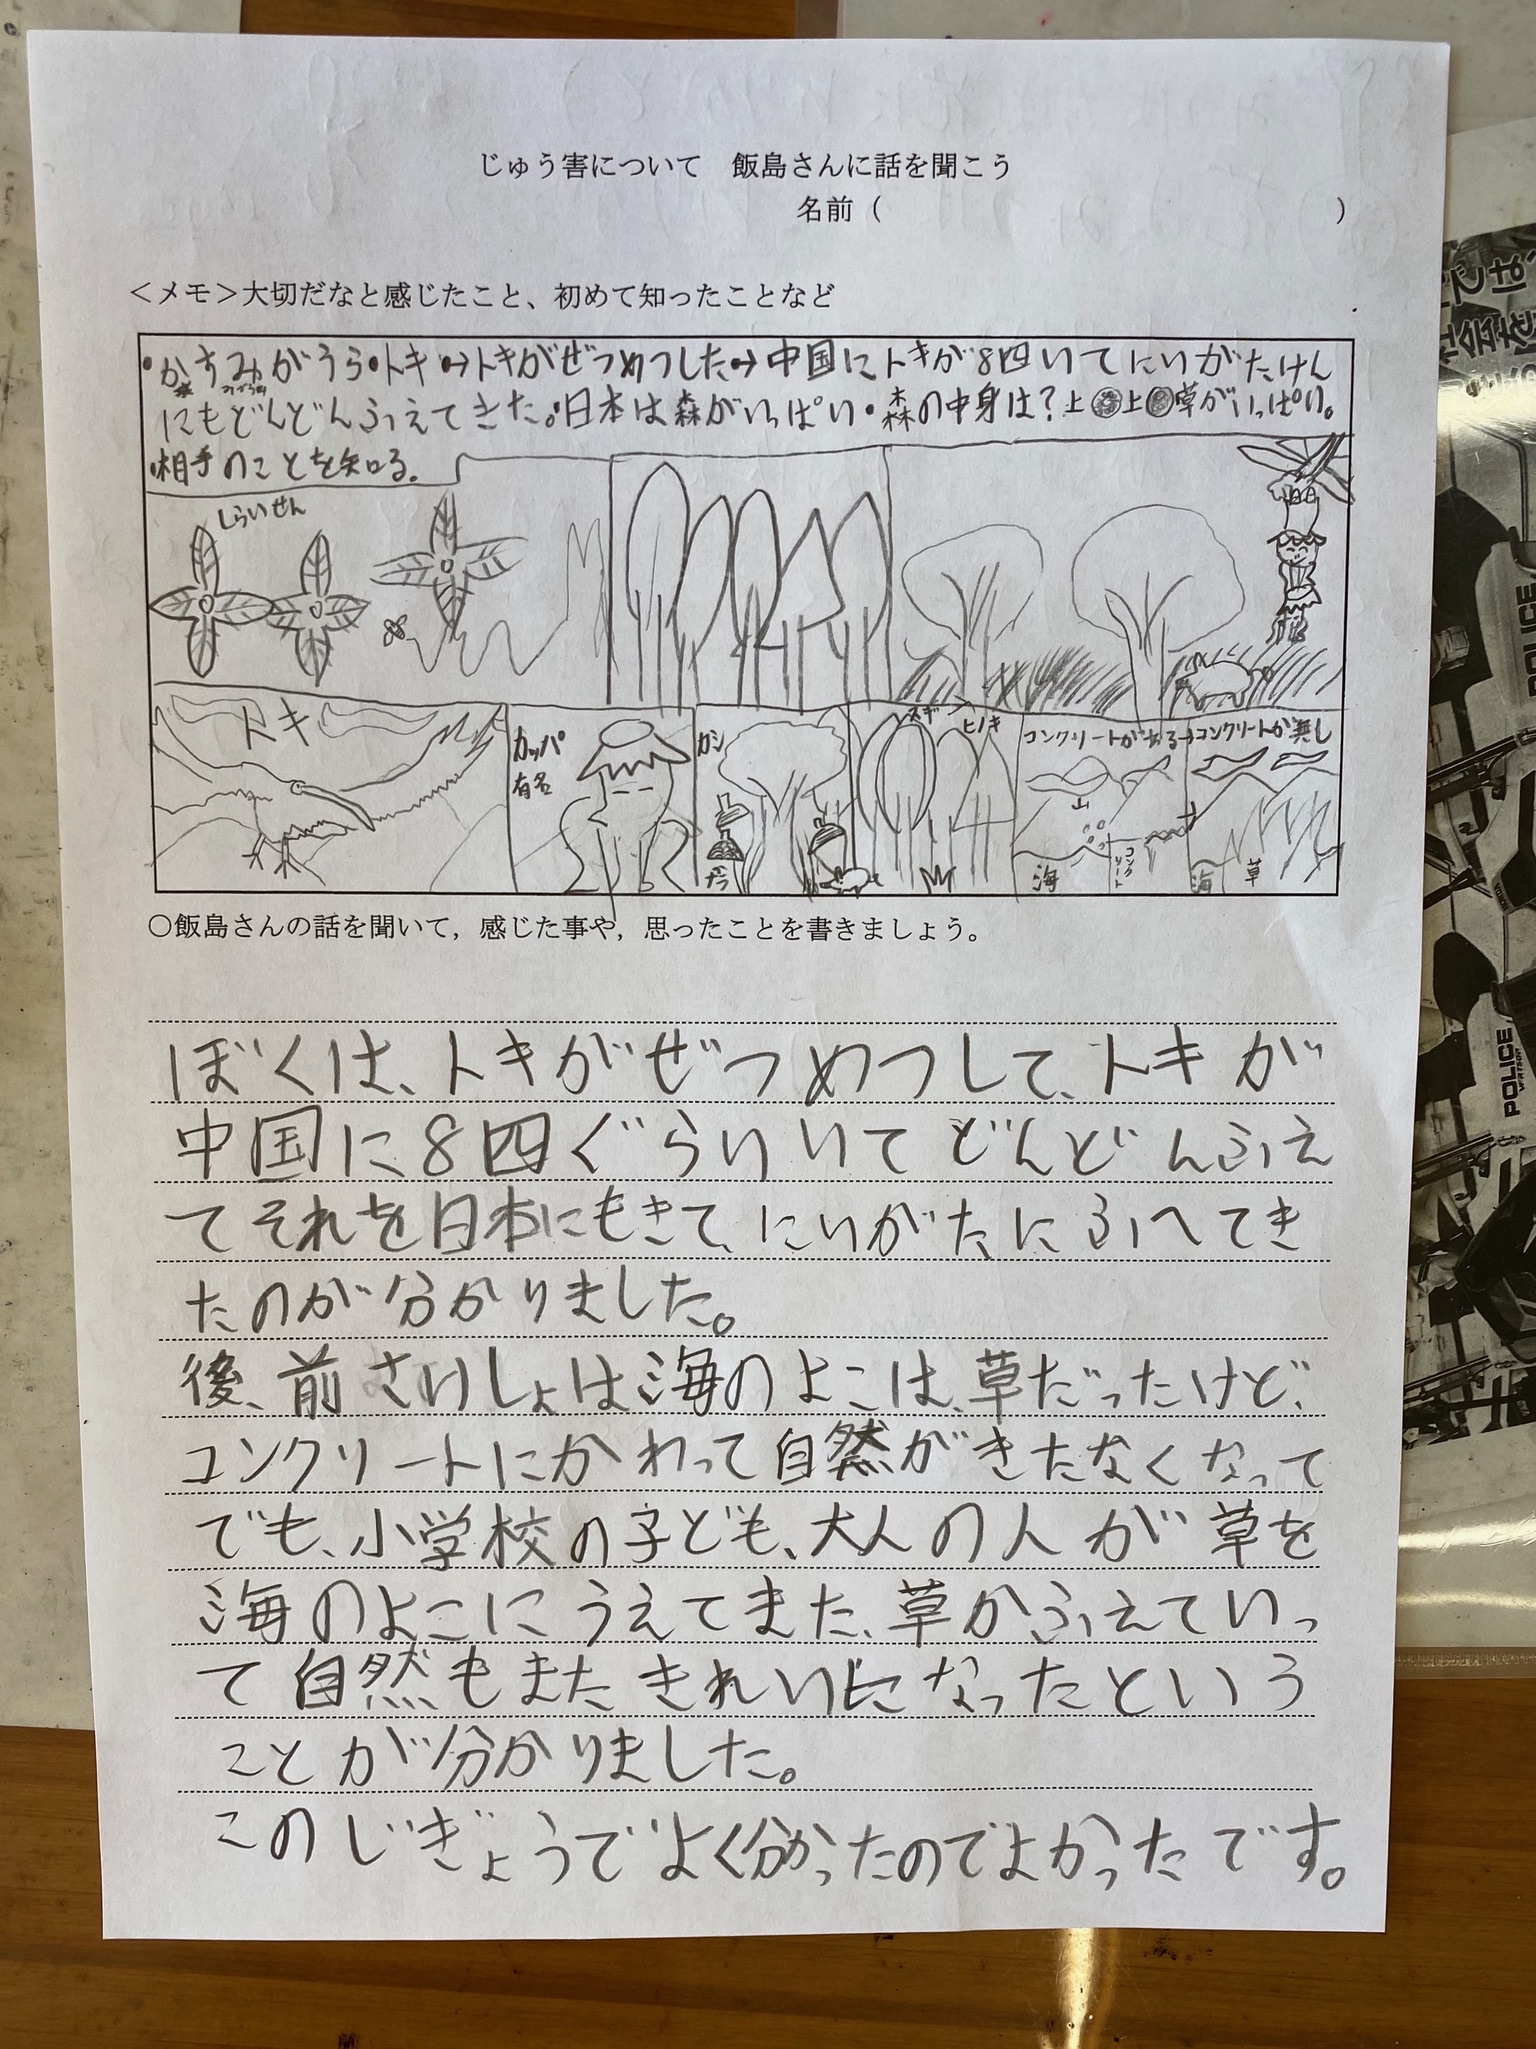 じゅう害について　飯島さんに話を聞こう
名前（　　　　　　　　　　　　　　　　）
＜メモ＞大切だなと感じたこと、初めて知ったことなど
・かすみがうら・トキ→トキがぜつめつした→中国にトキが8四いてにいがたけん
にもどんどんふえてきた。・日本は森がいっぱい・森の中身は？上上草がいっぱい。
・相手のことを知る。
しらいせん
トキ
カッパ
有名
カシ
スギ
ヒノキ
コンクリートがある→コンクリートが無し
山
海
コンクリート
海 草
○飯島さんの話を聞いて，感じた事や，思ったことを書きましょう。
ぼくは、トキがぜつめつして、トキが
中国に8四ぐらいいてどんどんふえ
てそれを日本にもきて、にいがたにふへてき
たのが分かりました。
後、前さいしょは海のよこは、草だったけど、
コンクリートにかわって自然がきたなくなって
でも、小学校の子ども、大人の人が草を
海のよこにうえてまた、草がふえていっ
て自然もまたきれいになったという
ことが分かりました。
このじぎょうでよく分かったのでよかったです。
POLICE
POLICE